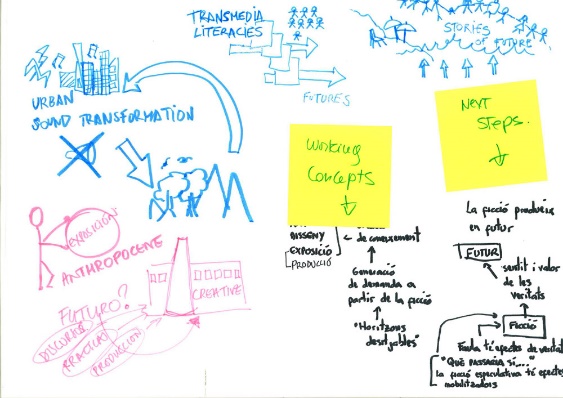 TRANSMEDIA
LITERACIES
FUTURES
STORIES
OF FUTURE
URBAN
SOUND TRANSFORMATION
Working
Concepts
NEXT
STEPS.
EXPOSICIÓN
ANTHROPOCENE
CREATIVE
FUTURO?
DISCURSO
PRACTICAS
PRODUCCION
DISSENY
EXPOSICIÓ
PRODUCCIÓ
de coneixement
Generació
de demanda a
partir de la ficció
"Horitzons
desitjables"
La ficció produeix
en futur
FUTUR
sentit i valor
de les
veritats
FICCIÓ
té efectes de veritat
"QUÈ PASSARIA SI,..."
la ficció especulativa té efectes
mobilitzadors